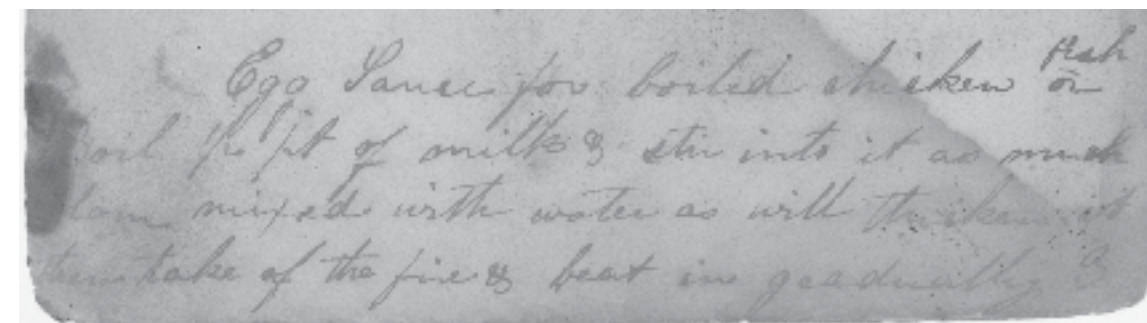 Egg Sauce for boiled chicken or fish
Boil ½ pt of milk & stir into it as much
mixed with water as will thicken it
then take of the fire & beat in gradually